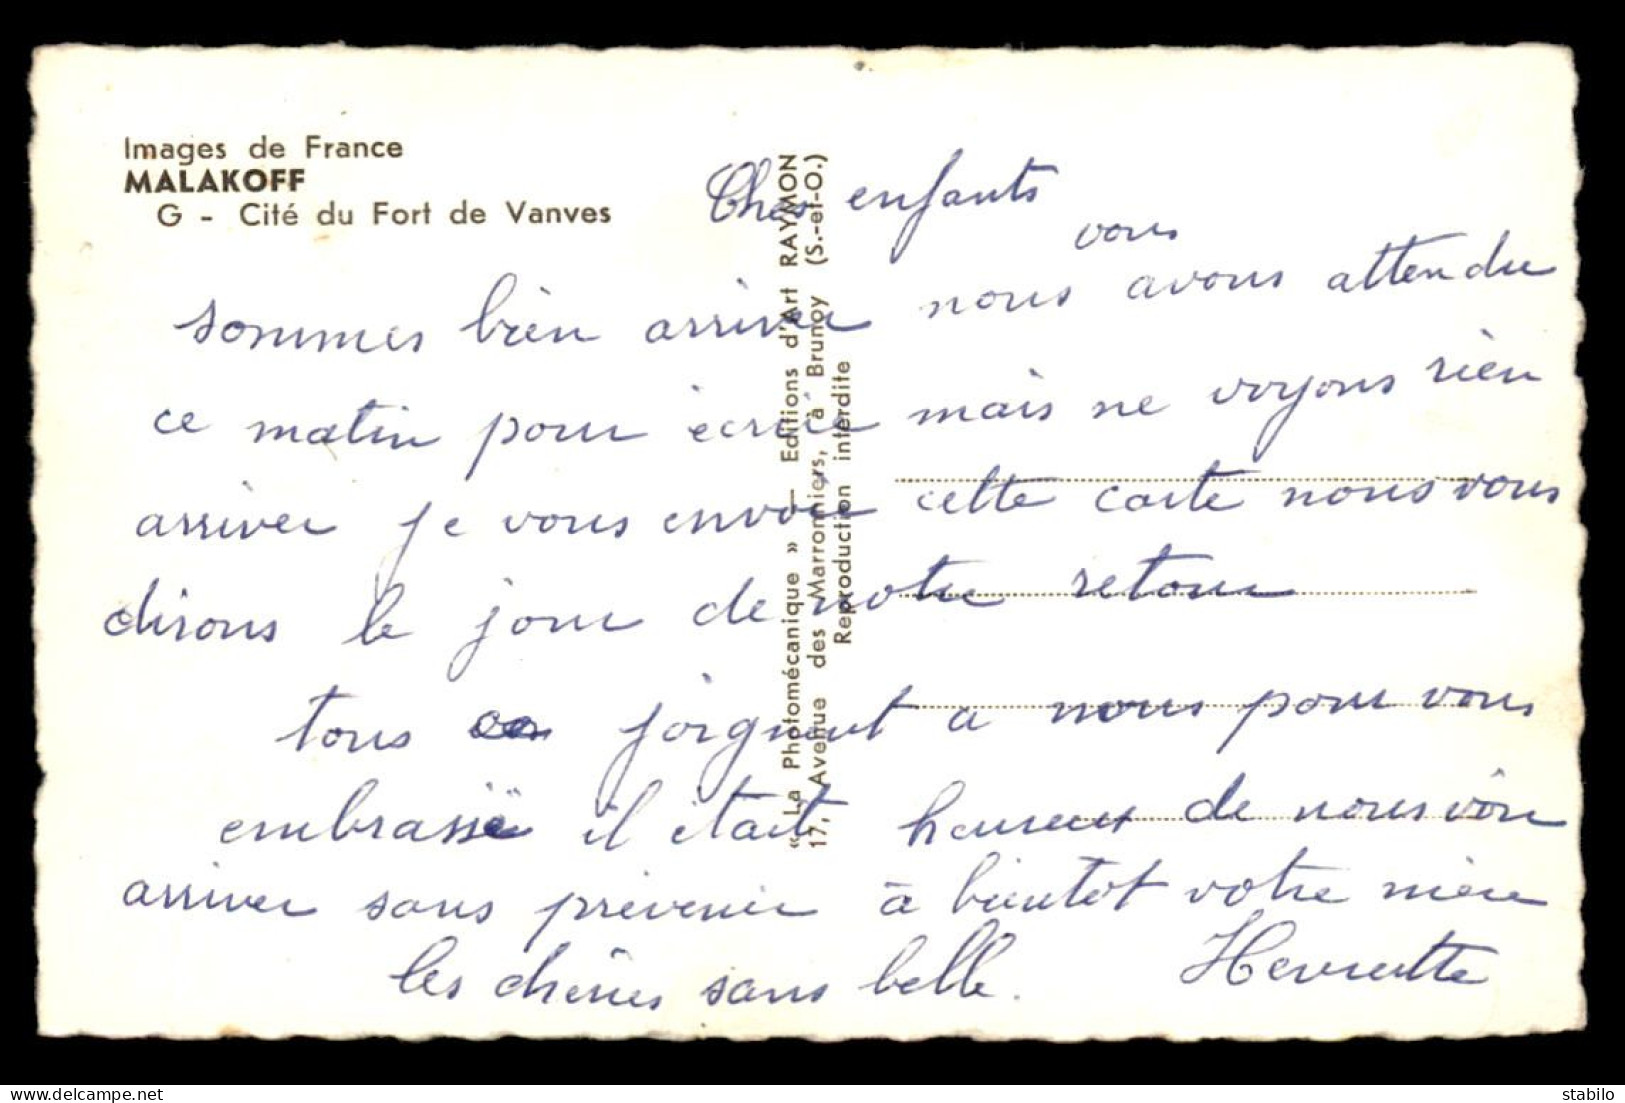 Images de France
MALAKOFF
G - Cité du Fort de Vanves
« La Photomécanique » — Editions d'Art RAYMON
17, Avenue des Marronniers, à Brunoy (S.-et-O.)
Reproduction interdite
Chers enfants
vous
sommes bien arriver nous avons attendu
ce matin pour écrire mais ne voyons rien
arriver je vous envoie cette carte nous vous
dirons le jour de notre retour
tous joignent a nous pour vous
embrasse il était heureux de nous voir
arriver sans prévenir à bientot votre mère
les chéries sans belle. Henriette
delcampe.net
stabilo